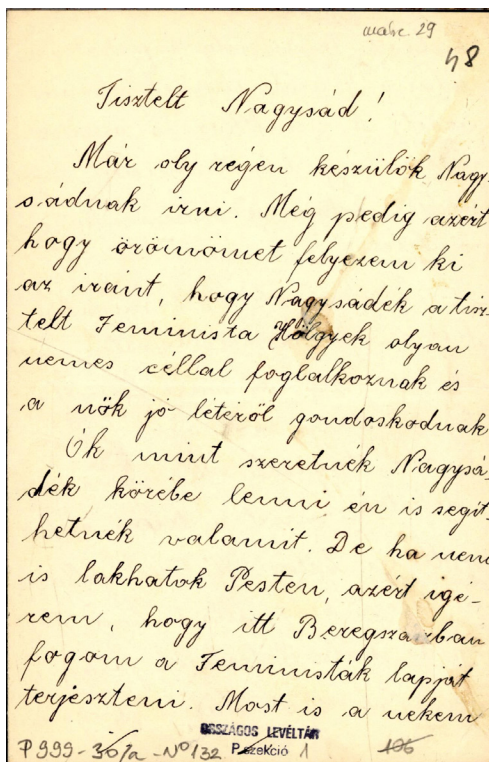 márc. 29
48
Tisztelt Nagysád!
Már oly régen készülök Nagy
sádnak irni. Még pedig azért
hogy örömömet felyezem ki
az iránt, hogy Nagysádék a tisz
telt Feminista Hölgyek olyan
nemes céllal foglalkoznak és
a nők jó létéről gondoskodnak
Ók mint szeretnék Nagysá-
dék körébe lenni én is segit-
hetnék valamit. De ha nem
is lakhatok Pesten, azért igé-
rem, hogy itt Beregszazban
fogom a Feministák lapját
terjeszteni. Most is a nekem
ORSZÁGOS LEVÉLTÁR
P szekció 1
P999-36/a-Nº132
106